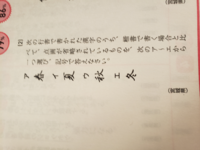 (2) 次の行書で書かれた漢字のうち、楷書で書く場合と比
べて、点画が省略されているものを、次のア〜エから
一つ選び、記号で答えなさい。
ア 春 イ 夏 ウ 秋 エ 冬
86%
79%